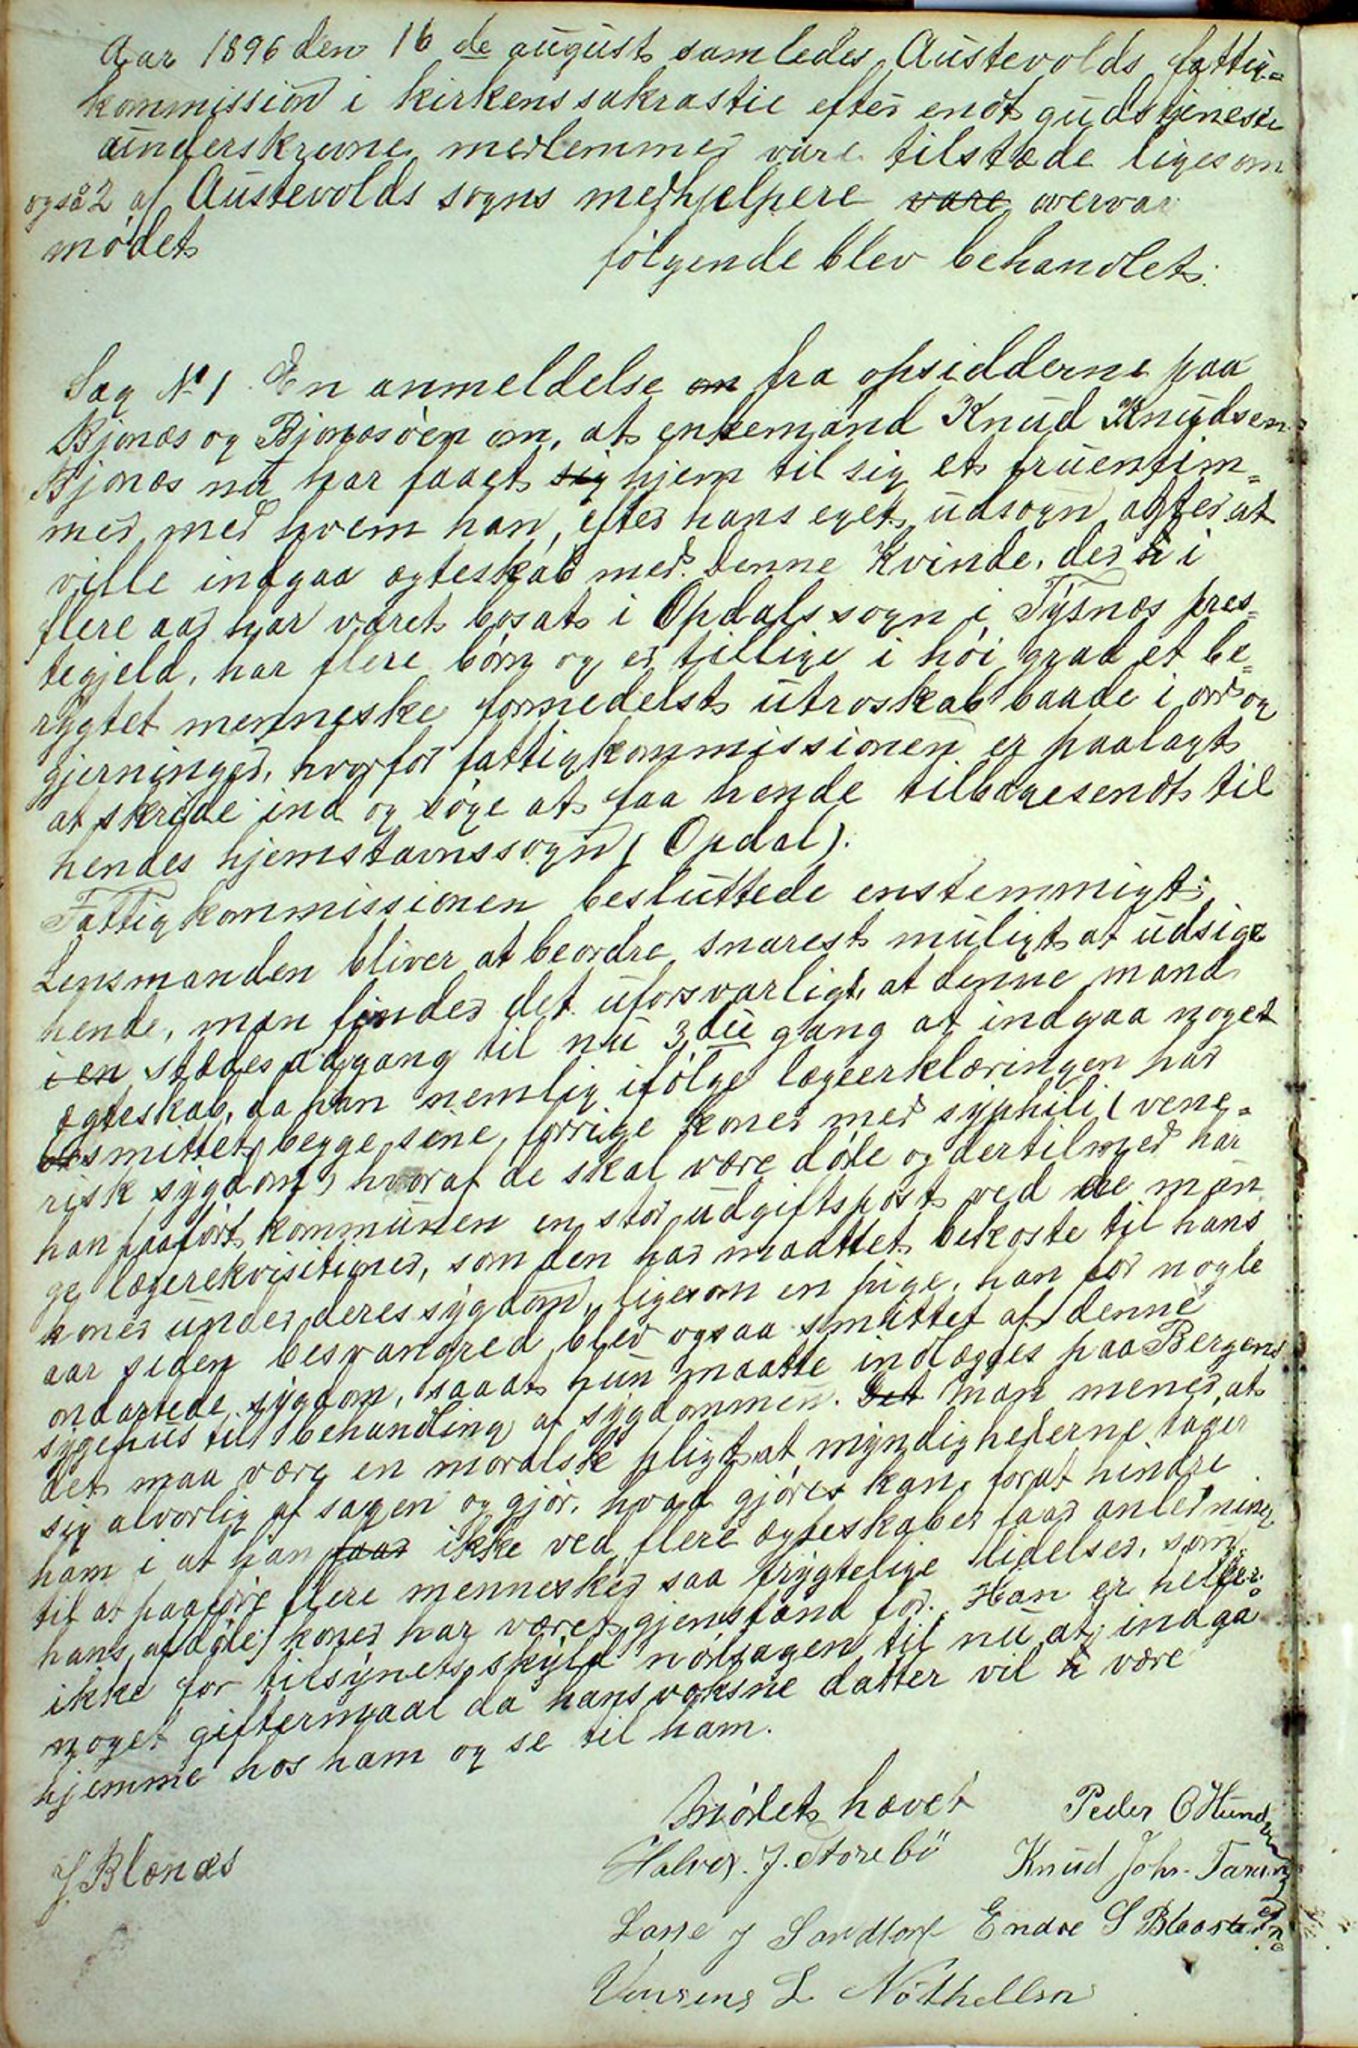 Aar 1896 den 16 de august samledes Austevolds fattig=
kommission i kirkens sakrastie efter endt gudstjeneste
underskrevne medlemmer vare tilstæde ligesom
også 2 af Austevolds sogns medhjelpere vare overvar
mødet
følgende blev behandlet:
Sag No 1 En anmeldelse om fra opsidderne paa
Bjonæs og Bjonæsøen om, at enkemand Knud Knudsen
Bjonæs nu har faaet sig hjem til sig et fruentim=
mer med hvem han, efter hans eget udsogn agter at
ville indgaa ægteskab med. Denne Kvinde, der h i
flere aar har været bosat i Opdals sogn i Tysnæs pres=
tegjeld, har flere børn og er tillige i høi grad et be=
rygtet menneske formedelst utroskab baade i ord og
gjerninger, hvorfor fattigkommissionen er paalagt
at skride ind og søge at faa hende tilbagesendt til
hendes hjemstavnssogn (Opdal).
Fattigkommissionen besluttede enstemmigt:
Lensmanden bliver at beordre snarest muligt at udsige
hende, man finder det uforsvarligt, at denne mand
i en stædes adgang til nu 3die gang at indgaa noget
ægteskab, da han nemlig ifølge lægeerklæringen har
smittet begge sine forrige koner med syphili (vene=
risk sygdom) hvoraf de skal være døde og dertilmed har
han paaført kommunen en stor udgiftspost ved de man
ge lægerekvisitioner, som den har maattet bekoste til hans
koner under deres sygdom, ligesom en pige, han for nogle
aar siden besvangred, blev ogsaa smittet af denne
ondartede sygdom, saaat hun maatte indlægges paa Bergens
sygehus til behandling af sygdommen. Det man mener, at
det maa være en moralsk pligt at myndighederne tager
sig alvorlig af sagen og gjør, hvad gjøres kan, forat hindre
ham i at han faar ikke ved flere ægteskaber faar anledning
til at paaføre flere mennesker saa frygtelige lidelser, som
hans afdøde koner har været gjenstand for. Han er heller
ikke for tilsynets skyld nødsagen til nu at indgaa
noget giftermaal da hans voksne datter vil h være
hjemme hos ham og se til ham.
Mødet hævet Peder O Hund
J. Blænæs Halvor J. Storebö Knud Johs.
Lasse J Sandtorf Endre S
L Nöthellen